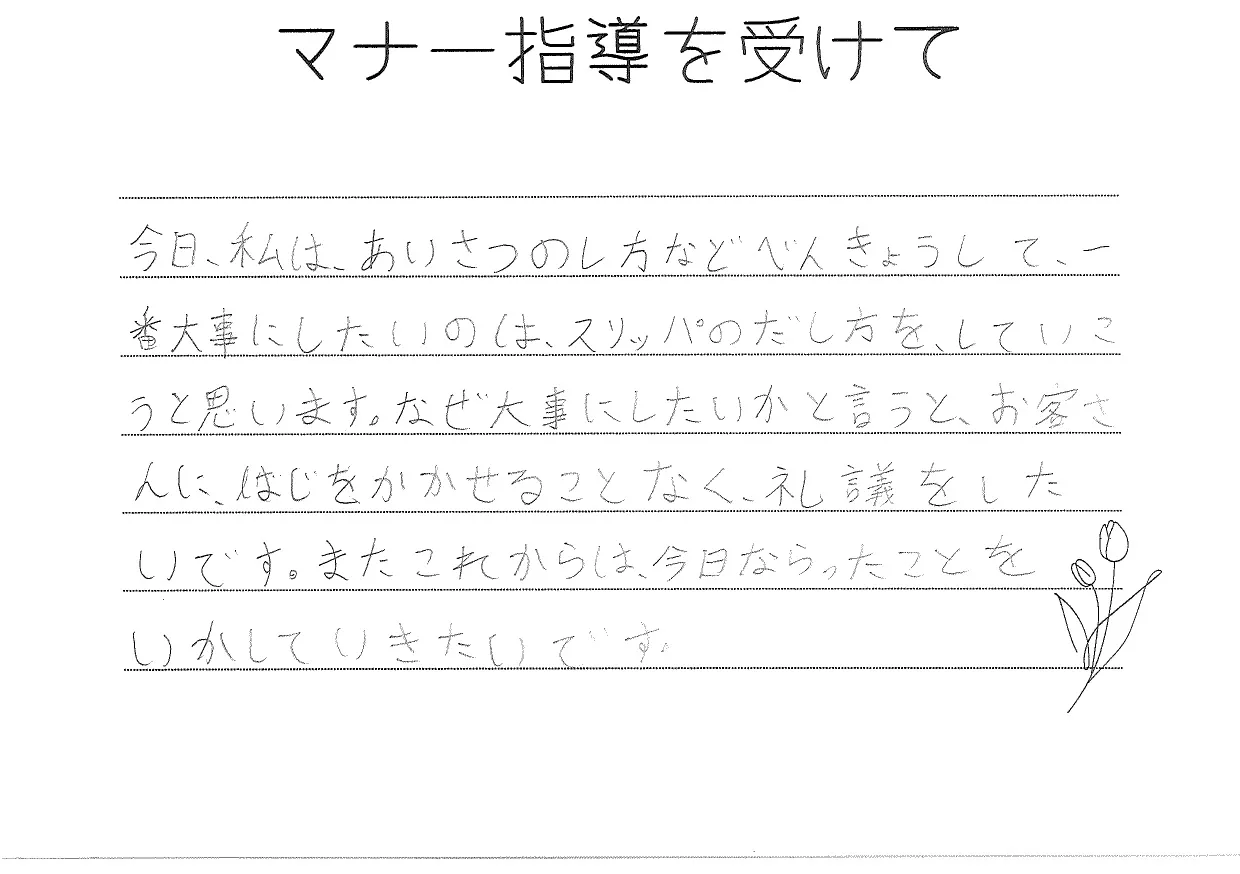 マナー指導を受けて
今日、私は、あいさつのし方などべんきょうして、一
番大事にしたいのは、スリッパのだし方を、していこ
うと思います。なぜ大事にしたいかと言うと、お客さ
んに、はじをかかせることなく、礼議をした
いです。またこれからは、今日ならったことを
いかしていきたいです。